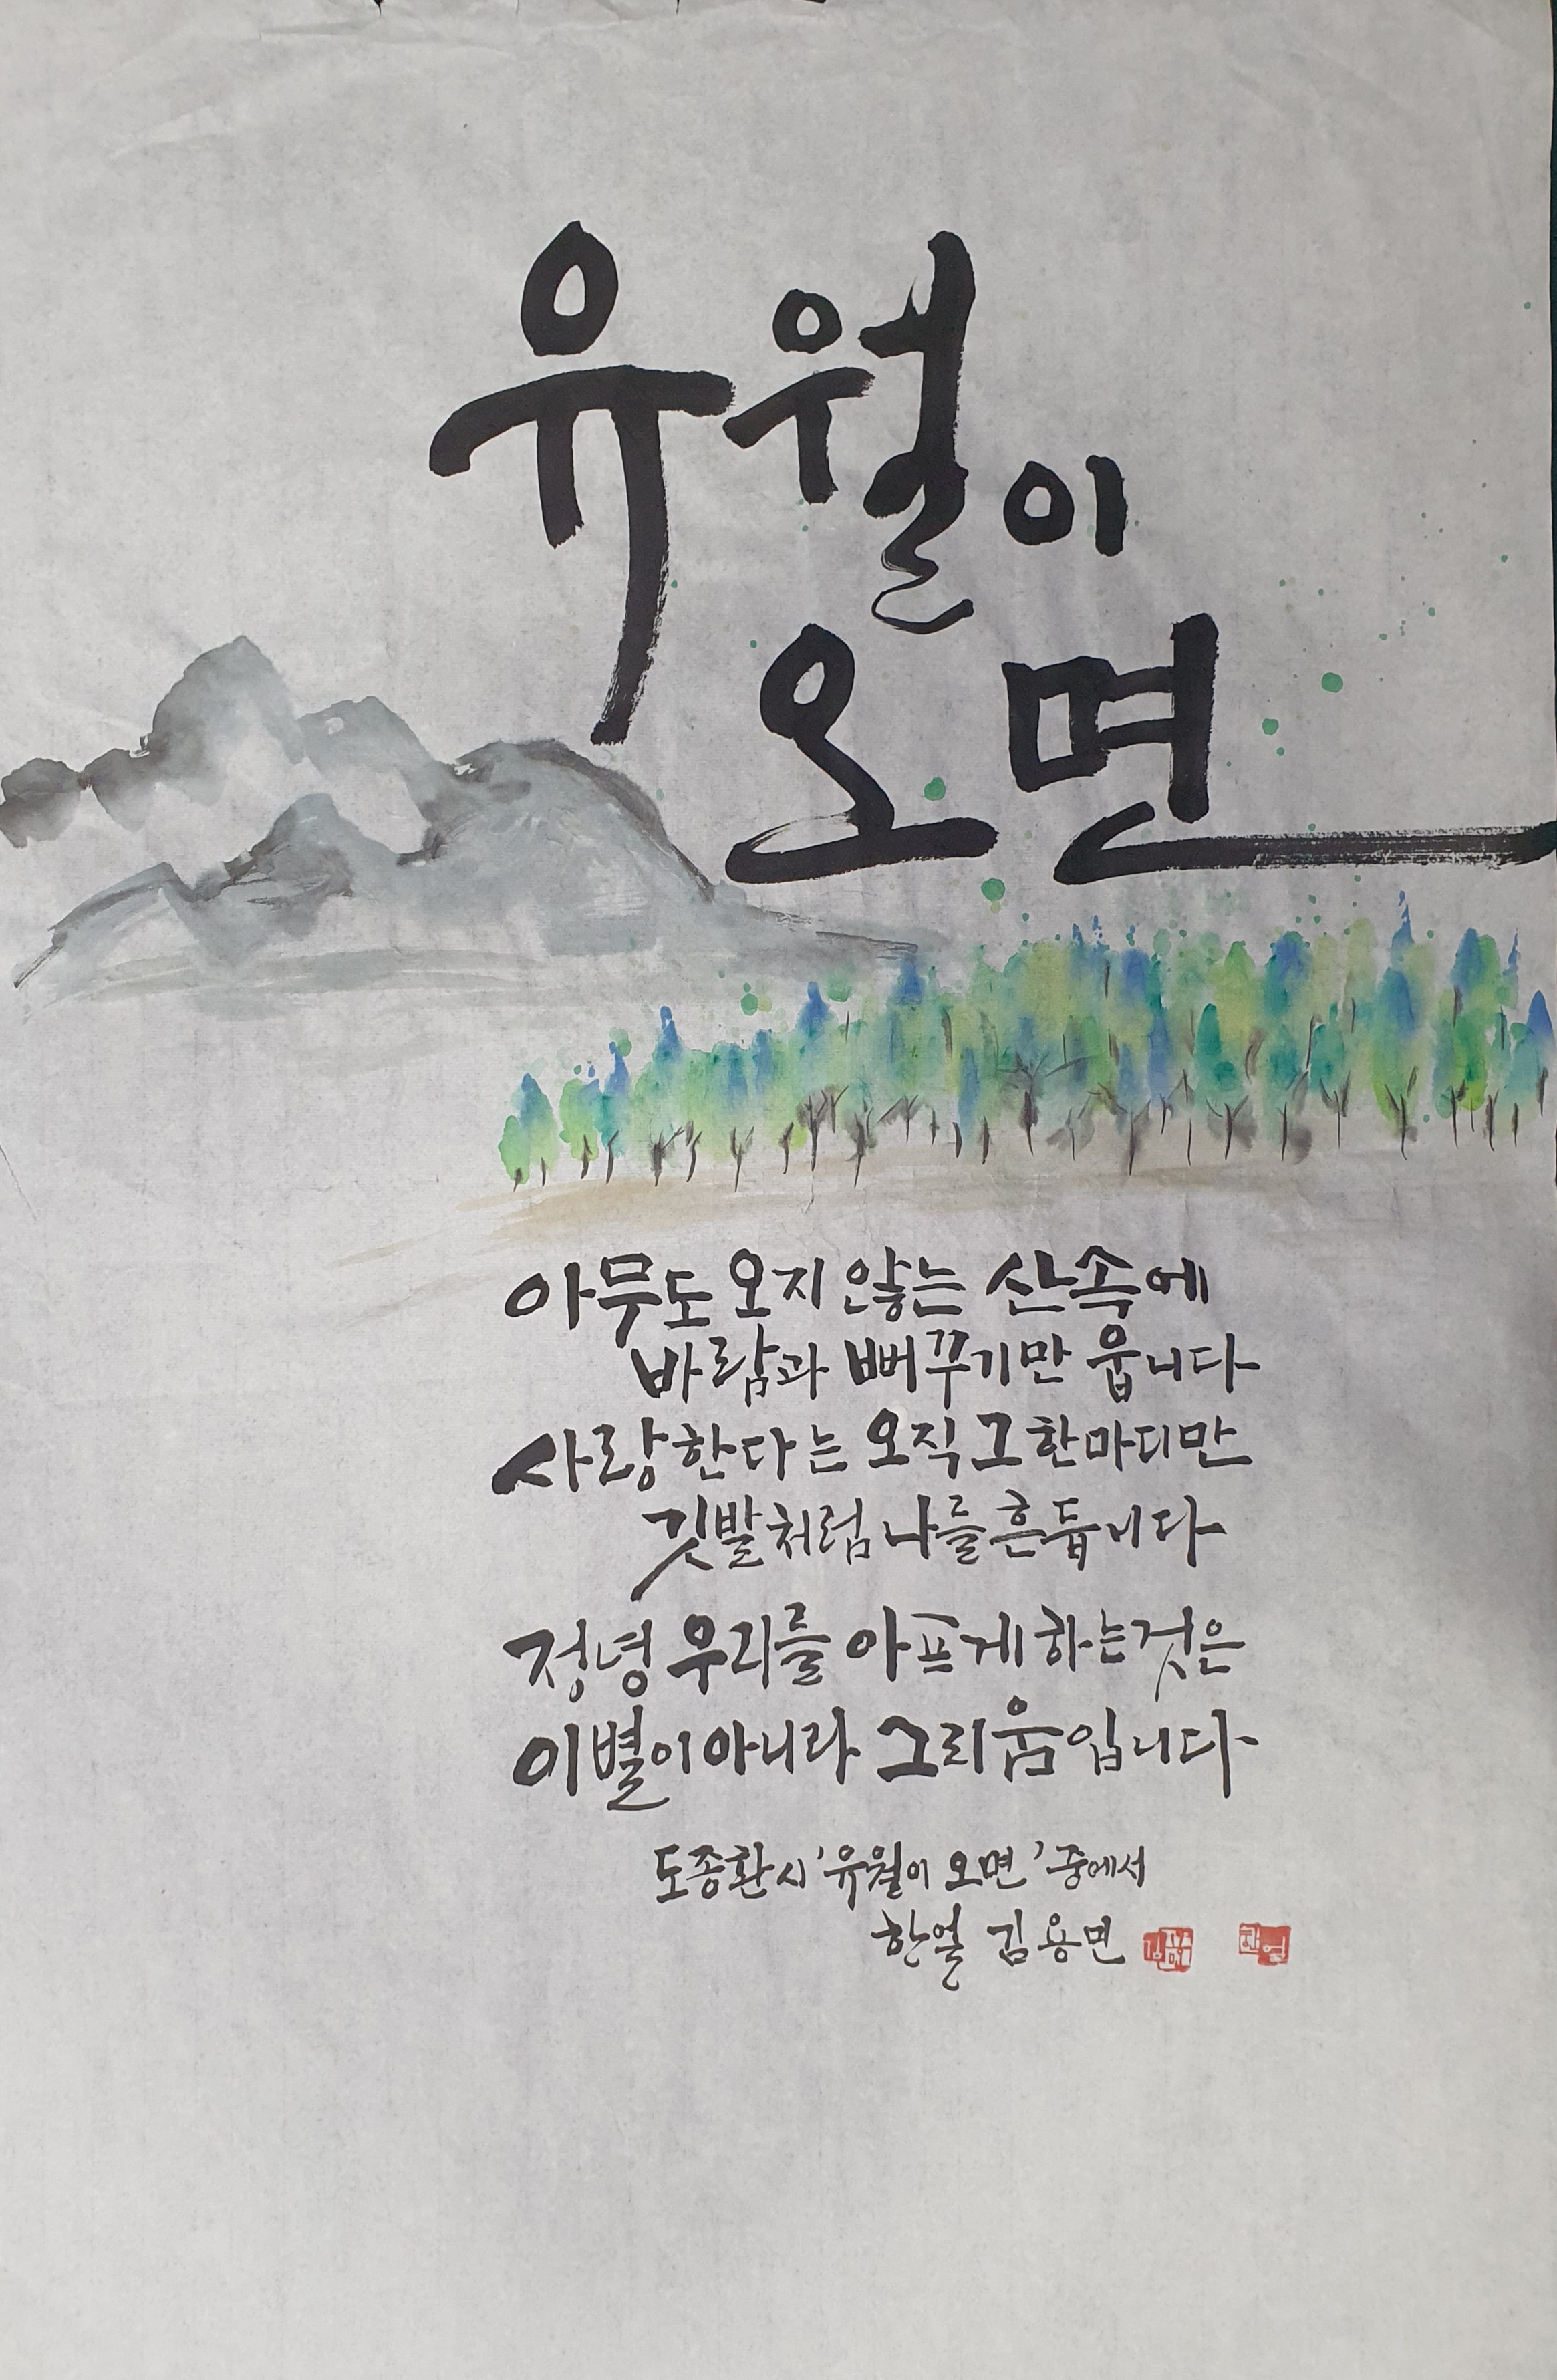 유월이
오면
아무도 오지 않는 산속에
바람과 뻐꾸기만 웁니다
사랑한다는 오직 그 한마디만
깃발처럼 나를 흔듭니다
정녕 우리를 아프게 하는 것은
이별이 아니라 그리움입니다
도종환 시 '유월이 오면' 중에서
한얼 김용면
한얼